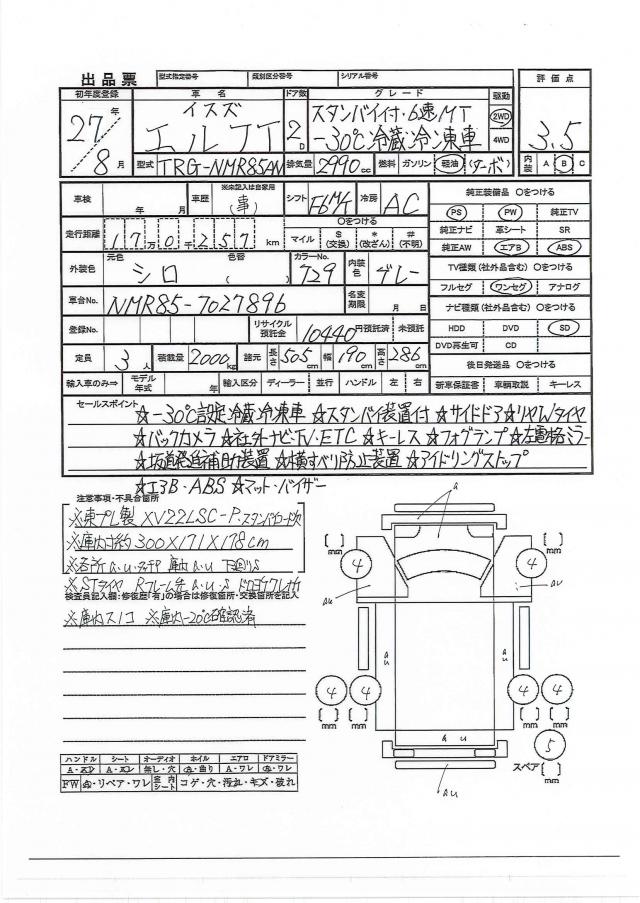 出品票 型式指定番号 類別区分番号 シリアル番号 評価点
初年度登録 車名 ドア数 グレード 駆動
27年 イスズ スタンバイ付・6速MT 2WD
8月 エルフT 2D -30℃冷蔵冷凍車 4WD 3.5
型式 TRG-NMR85AN 排気量 2990cc 燃料 ガソリン 軽油 (ターボ) 内装 A B C
車検 年 月 車歴 ※未記入は自家用 (事) シフト F6M/T 冷房 AC 純正装備品 ○をつける
PS PW 純正TV
走行距離 17万0千257km マイル ○をつける $(交換) *(改ざん) #(不明) 純正ナビ 革シート SR
純正AW エアB ABS
外装色 元色 シロ 色替 ( ) カラーNo. 729 内装色 グレー TV種類(社外品含む) ○をつける
フルセグ ワンセグ アナログ
車台No. NMR85-7027896 名変期限 月 日 ナビ種類(社外品含む) ○をつける
登録No. リサイクル預託金 10440円預託済 未預託 HDD DVD SD
DVD再生可 CD
定員 3人 積載量 2000kg 諸元 長さ 505cm 幅 190cm 高さ 286cm 後日発送品 ○をつける
輸入車のみ⇒ モデル年式 年 輸入区分 ディーラー 並行 ハンドル 左 右 新車保証書 車輌取説 キーレス
セールスポイント ☆-30℃設定冷蔵冷凍車 ☆スタンバイ装置付 ☆サイドドア☆リヤWタイヤ
☆バックカメラ ☆社外ナビ・TV・ETC ☆キーレス ☆フォグランプ ☆左電格ミラー
☆坂道発進補助装置 ☆横すべり防止装置 ☆アイドリングストップ
☆エアB・ABS ☆マット・バイザー
注意事項・不具合箇所
※東プレ製 XV22LSC-P・スタンバイコード欠
※庫内寸約300×171×178cm
※各所a.u. 庫内a.u 下廻りS
※STタイヤ Rフレーム a.u.s
検査員記入欄:修復歴「有」の場合は修復箇所・交換箇所を記入
※庫内スノコ ※庫内-20℃確認済
a
[ ]mm 4 4 [ ]mm
au au
au au
4 4 4 4
[ ]mm [ ]mm [ ]mm [ ]mm
a u
スペア 5 [ ]mm
au
ハンドル シート オーディオ ホイル エアロ ドアミラー
A・スレ A・スレ 無し・穴 A・曲り A・ワレ A・ワレ
FW A・リペア・ワレ 室内シート コゲ・穴・汚れ・キズ・破れ